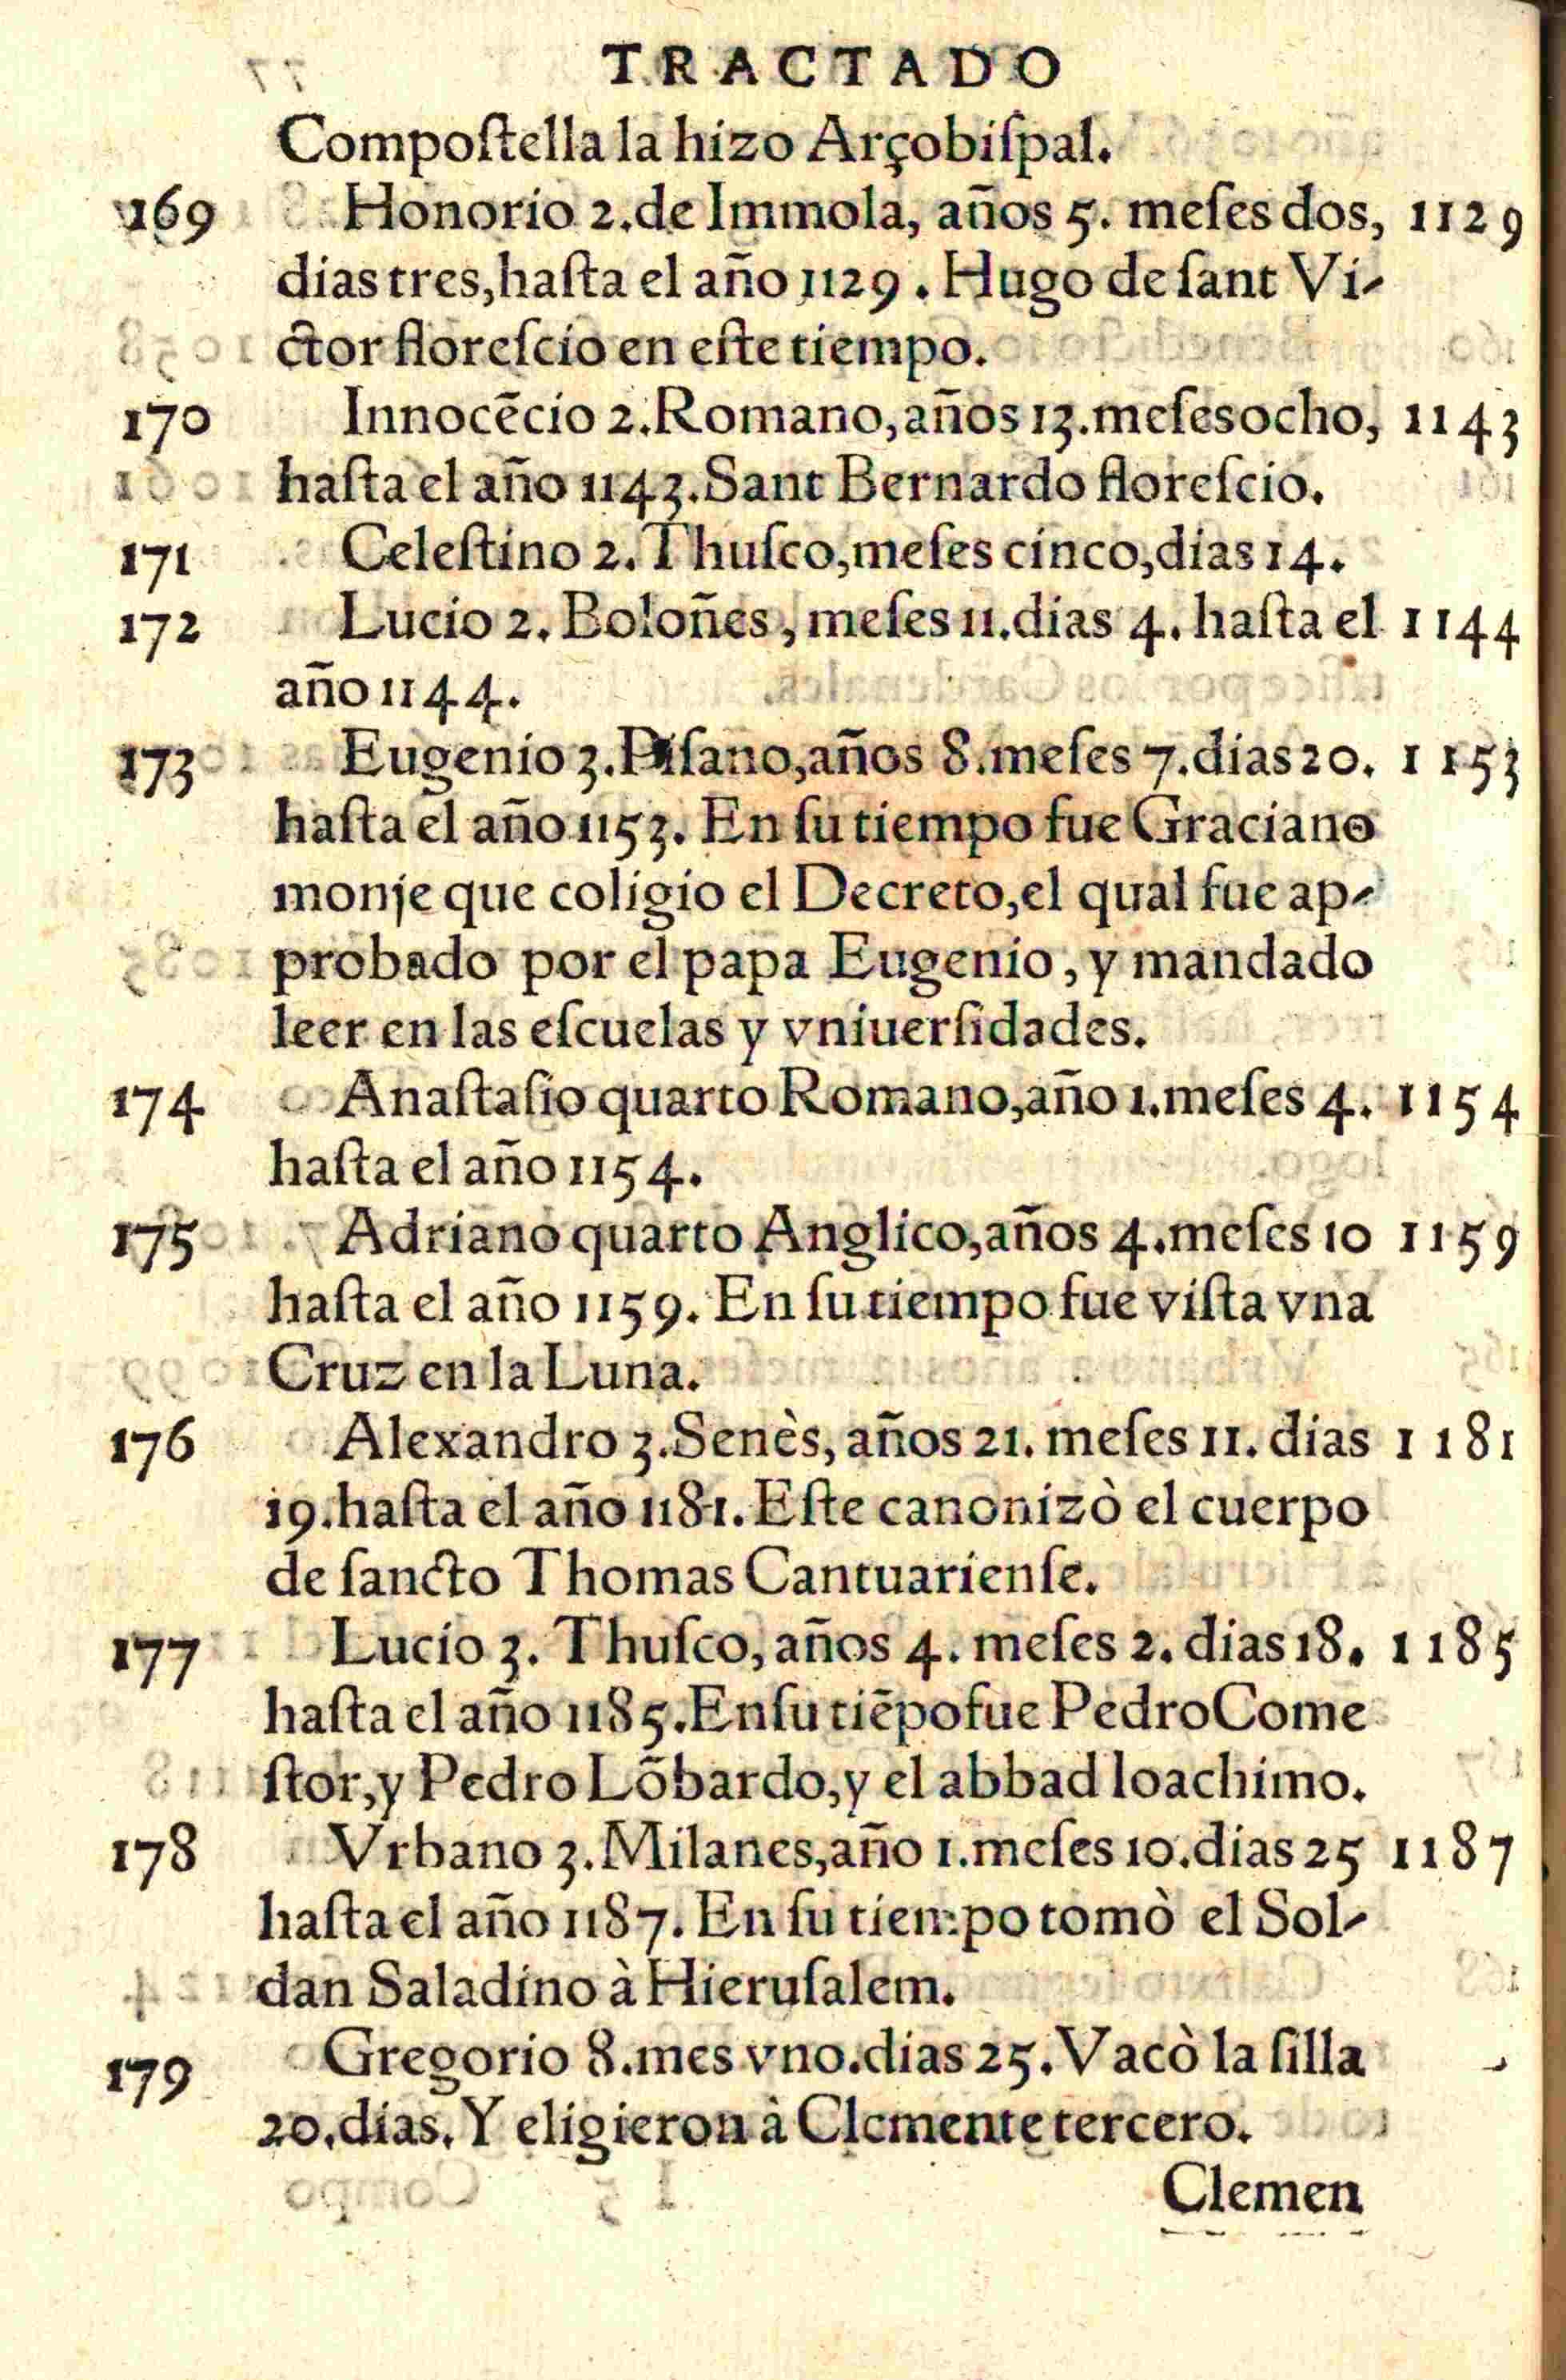 TRACTADO
Compoſtella la hizo Arçobiſpal.
169 Honorio 2. de Immola, años 5. meſes dos, 1129
dias tres, haſta el año 1129. Hugo de ſant Vi-
ctor floreſcio en eſte tiempo.
170 Innocẽcio 2. Romano, años 13. meſes ocho, 1143
haſta el año 1143. Sant Bernardo floreſcio.
171 Celeſtino 2. Thuſco, meſes cinco, dias 14.
172 Lucio 2. Boloñes, meſes 11. dias 4. haſta el 1144
año 1144.
173 Eugenio 3. Piſano, años 8. meſes 7. dias 20. 1153
haſta el año 1153. En ſu tiempo fue Graciano
monje que coligio el Decreto, el qual fue ap-
probado por el papa Eugenio, y mandado
leer en las eſcuelas y vniuerſidades.
174 Anaſtaſio quarto Romano, año 1. meſes 4. 1154
haſta el año 1154.
175 Adriano quarto Anglico, años 4. meſes 10 1159
haſta el año 1159. En ſu tiempo fue viſta vna
Cruz en la Luna.
176 Alexandro 3. Senès, años 21. meſes 11. dias 1181
19. haſta el año 1181. Eſte canonizò el cuerpo
de ſancto Thomas Cantuarienſe.
177 Lucio 3. Thuſco, años 4. meſes 2. dias 18. 1185
haſta el año 1185. En ſu tiẽpo fue Pedro Come
ſtor, y Pedro Lõbardo, y el abbad Ioachimo.
178 Vrbano 3. Milanes, año 1. meſes 10. dias 25 1187
haſta el año 1187. En ſu tiempo tomò el Sol-
dan Saladino à Hieruſalem.
179 Gregorio 8. mes vno. dias 25. Vacò la ſilla
20. dias. Y eligieron à Clemente tercero.
Clemen